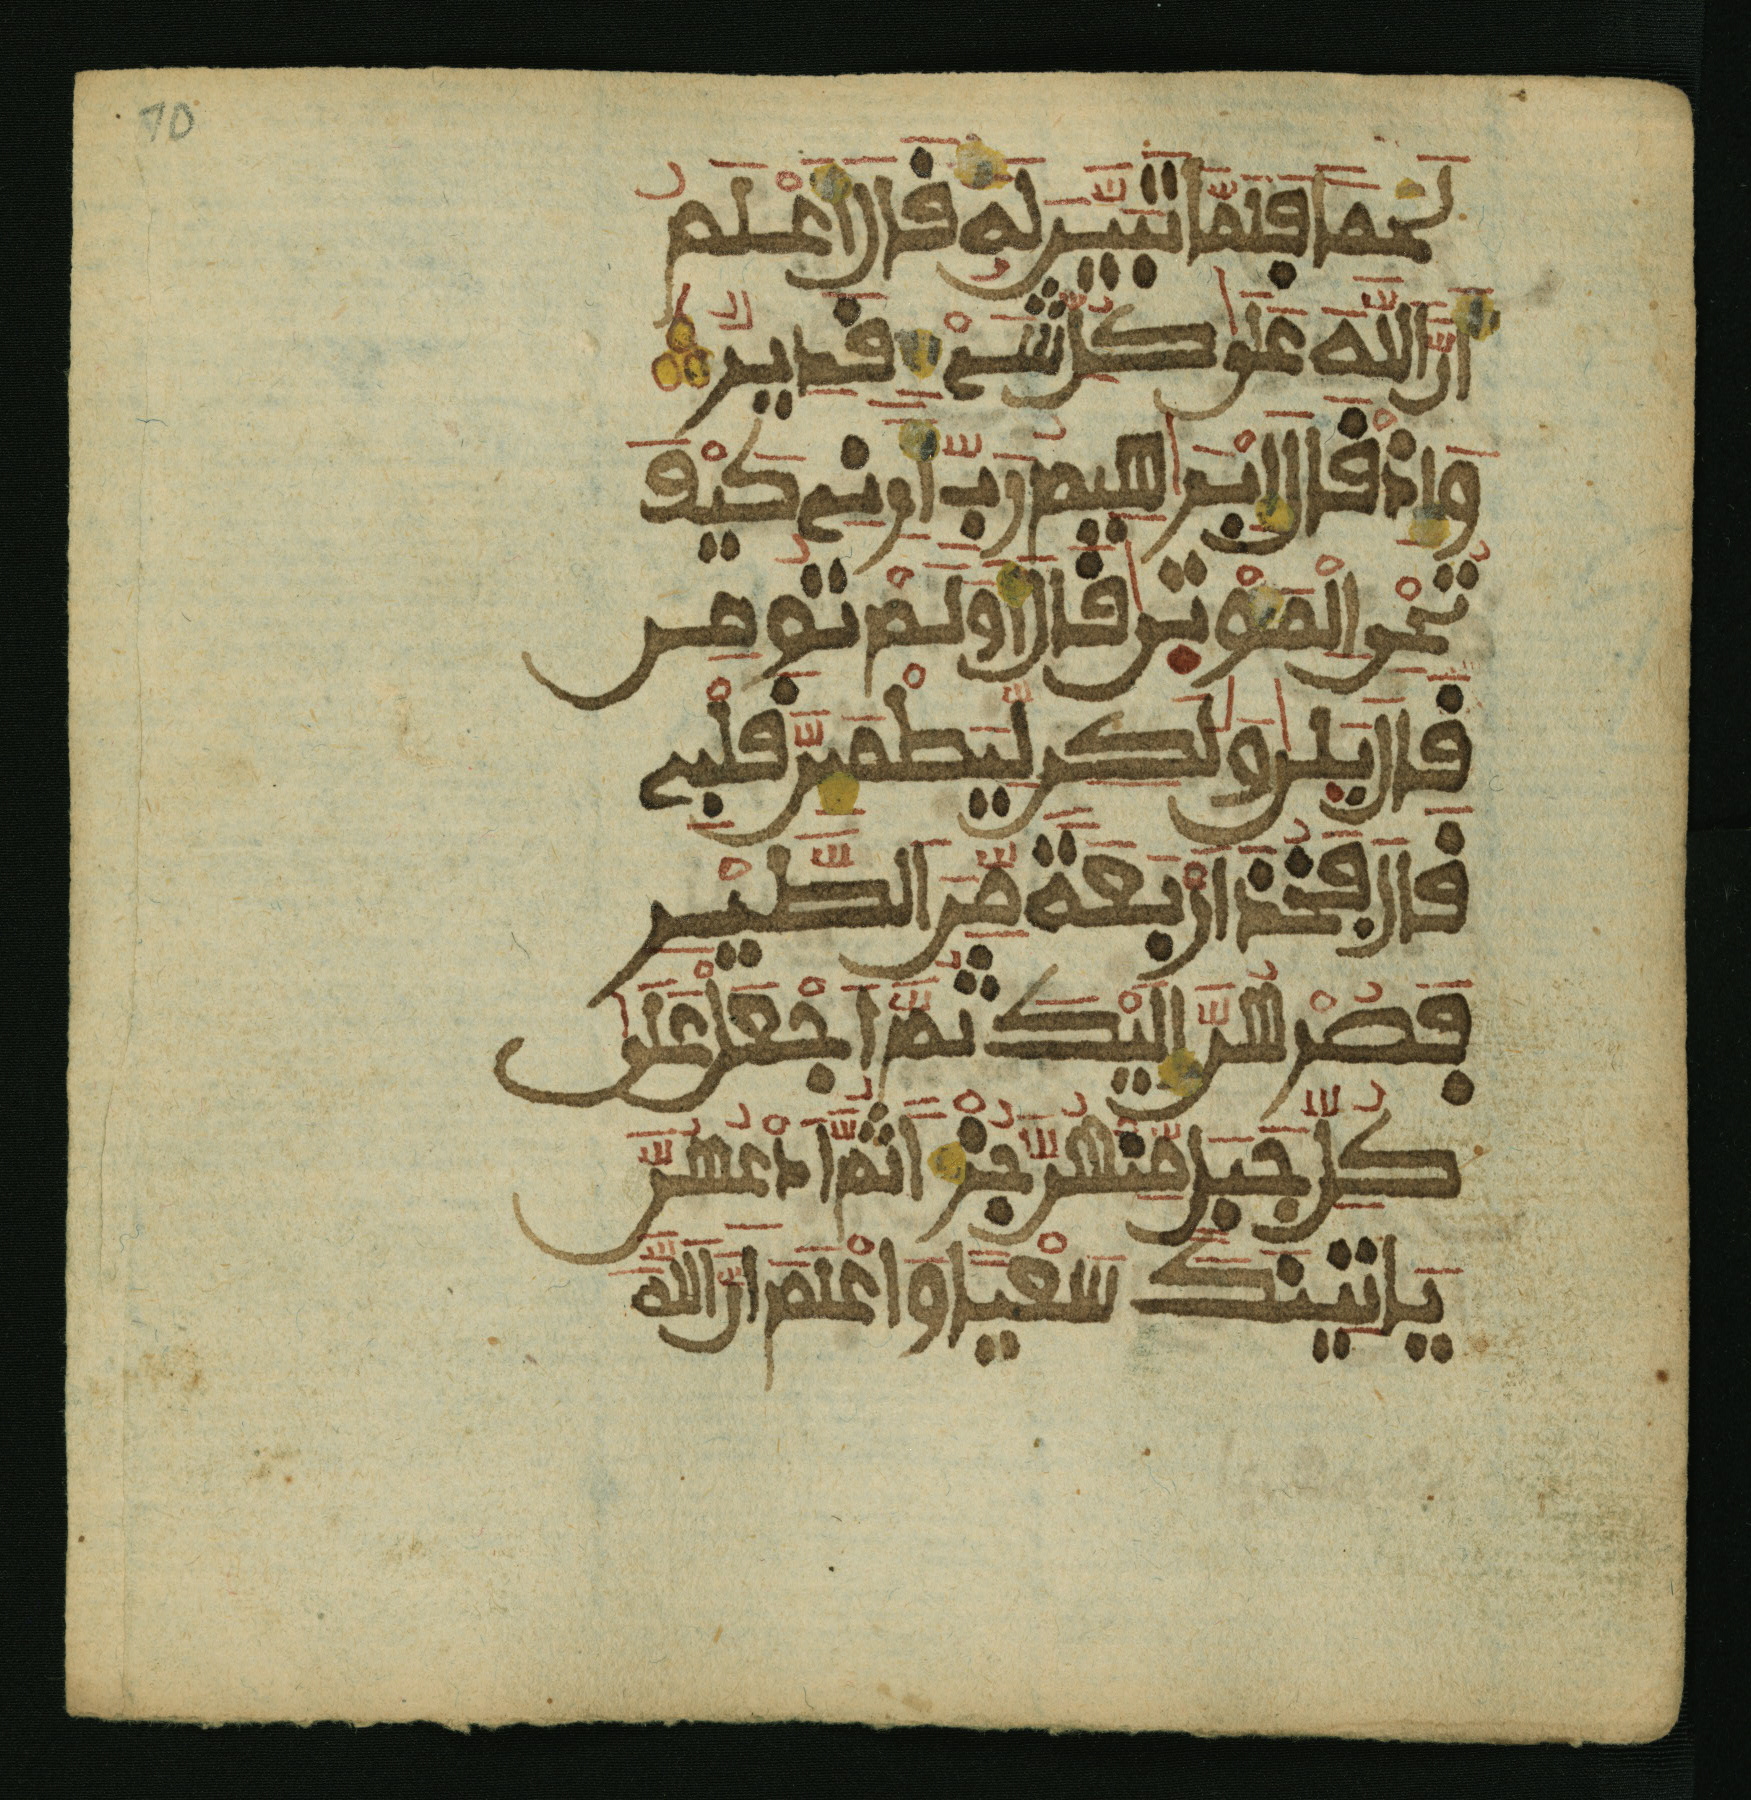 70
لَحْمًا فَلَمَّا تَبَيَّنَ لَهُ قَالَ أَعْلَمُ
أَنَّ اللَّهَ عَلَىٰ كُلِّ شَيْءٍ قَدِيرٌ
وَإِذْ قَالَ إِبْرَٰهِيمُ رَبِّ أَرِنِي كَيْفَ
تُحْيِ الْمَوْتَىٰ قَالَ أَوَلَمْ تُؤْمِن
قَالَ بَلَىٰ وَلَٰكِن لِّيَطْمَئِنَّ قَلْبِي
قَالَ فَخُذْ أَرْبَعَةً مِّنَ الطَّيْرِ
فَصُرْهُنَّ إِلَيْكَ ثُمَّ اجْعَلْ عَلَىٰ
كُلِّ جَبَلٍ مِّنْهُنَّ جُزْءًا ثُمَّ ادْعُهُنَّ
يَأْتِينَكَ سَعْيًا وَاعْلَمْ أَنَّ اللَّهَ